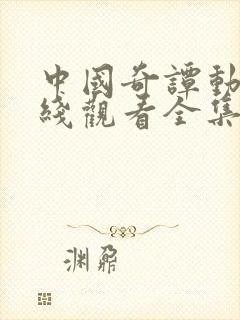 中國奇譚動
綫觀看全集
渊鼐